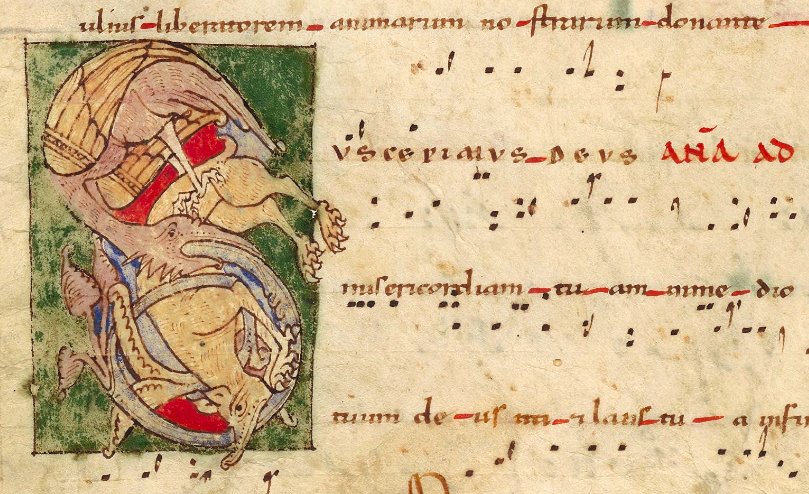 ulius liberatorem animarum no strarum donante
uscepimus deus ANA AD
misericordiam tu am inme dio
tuum de us ita & laus tu a in fin